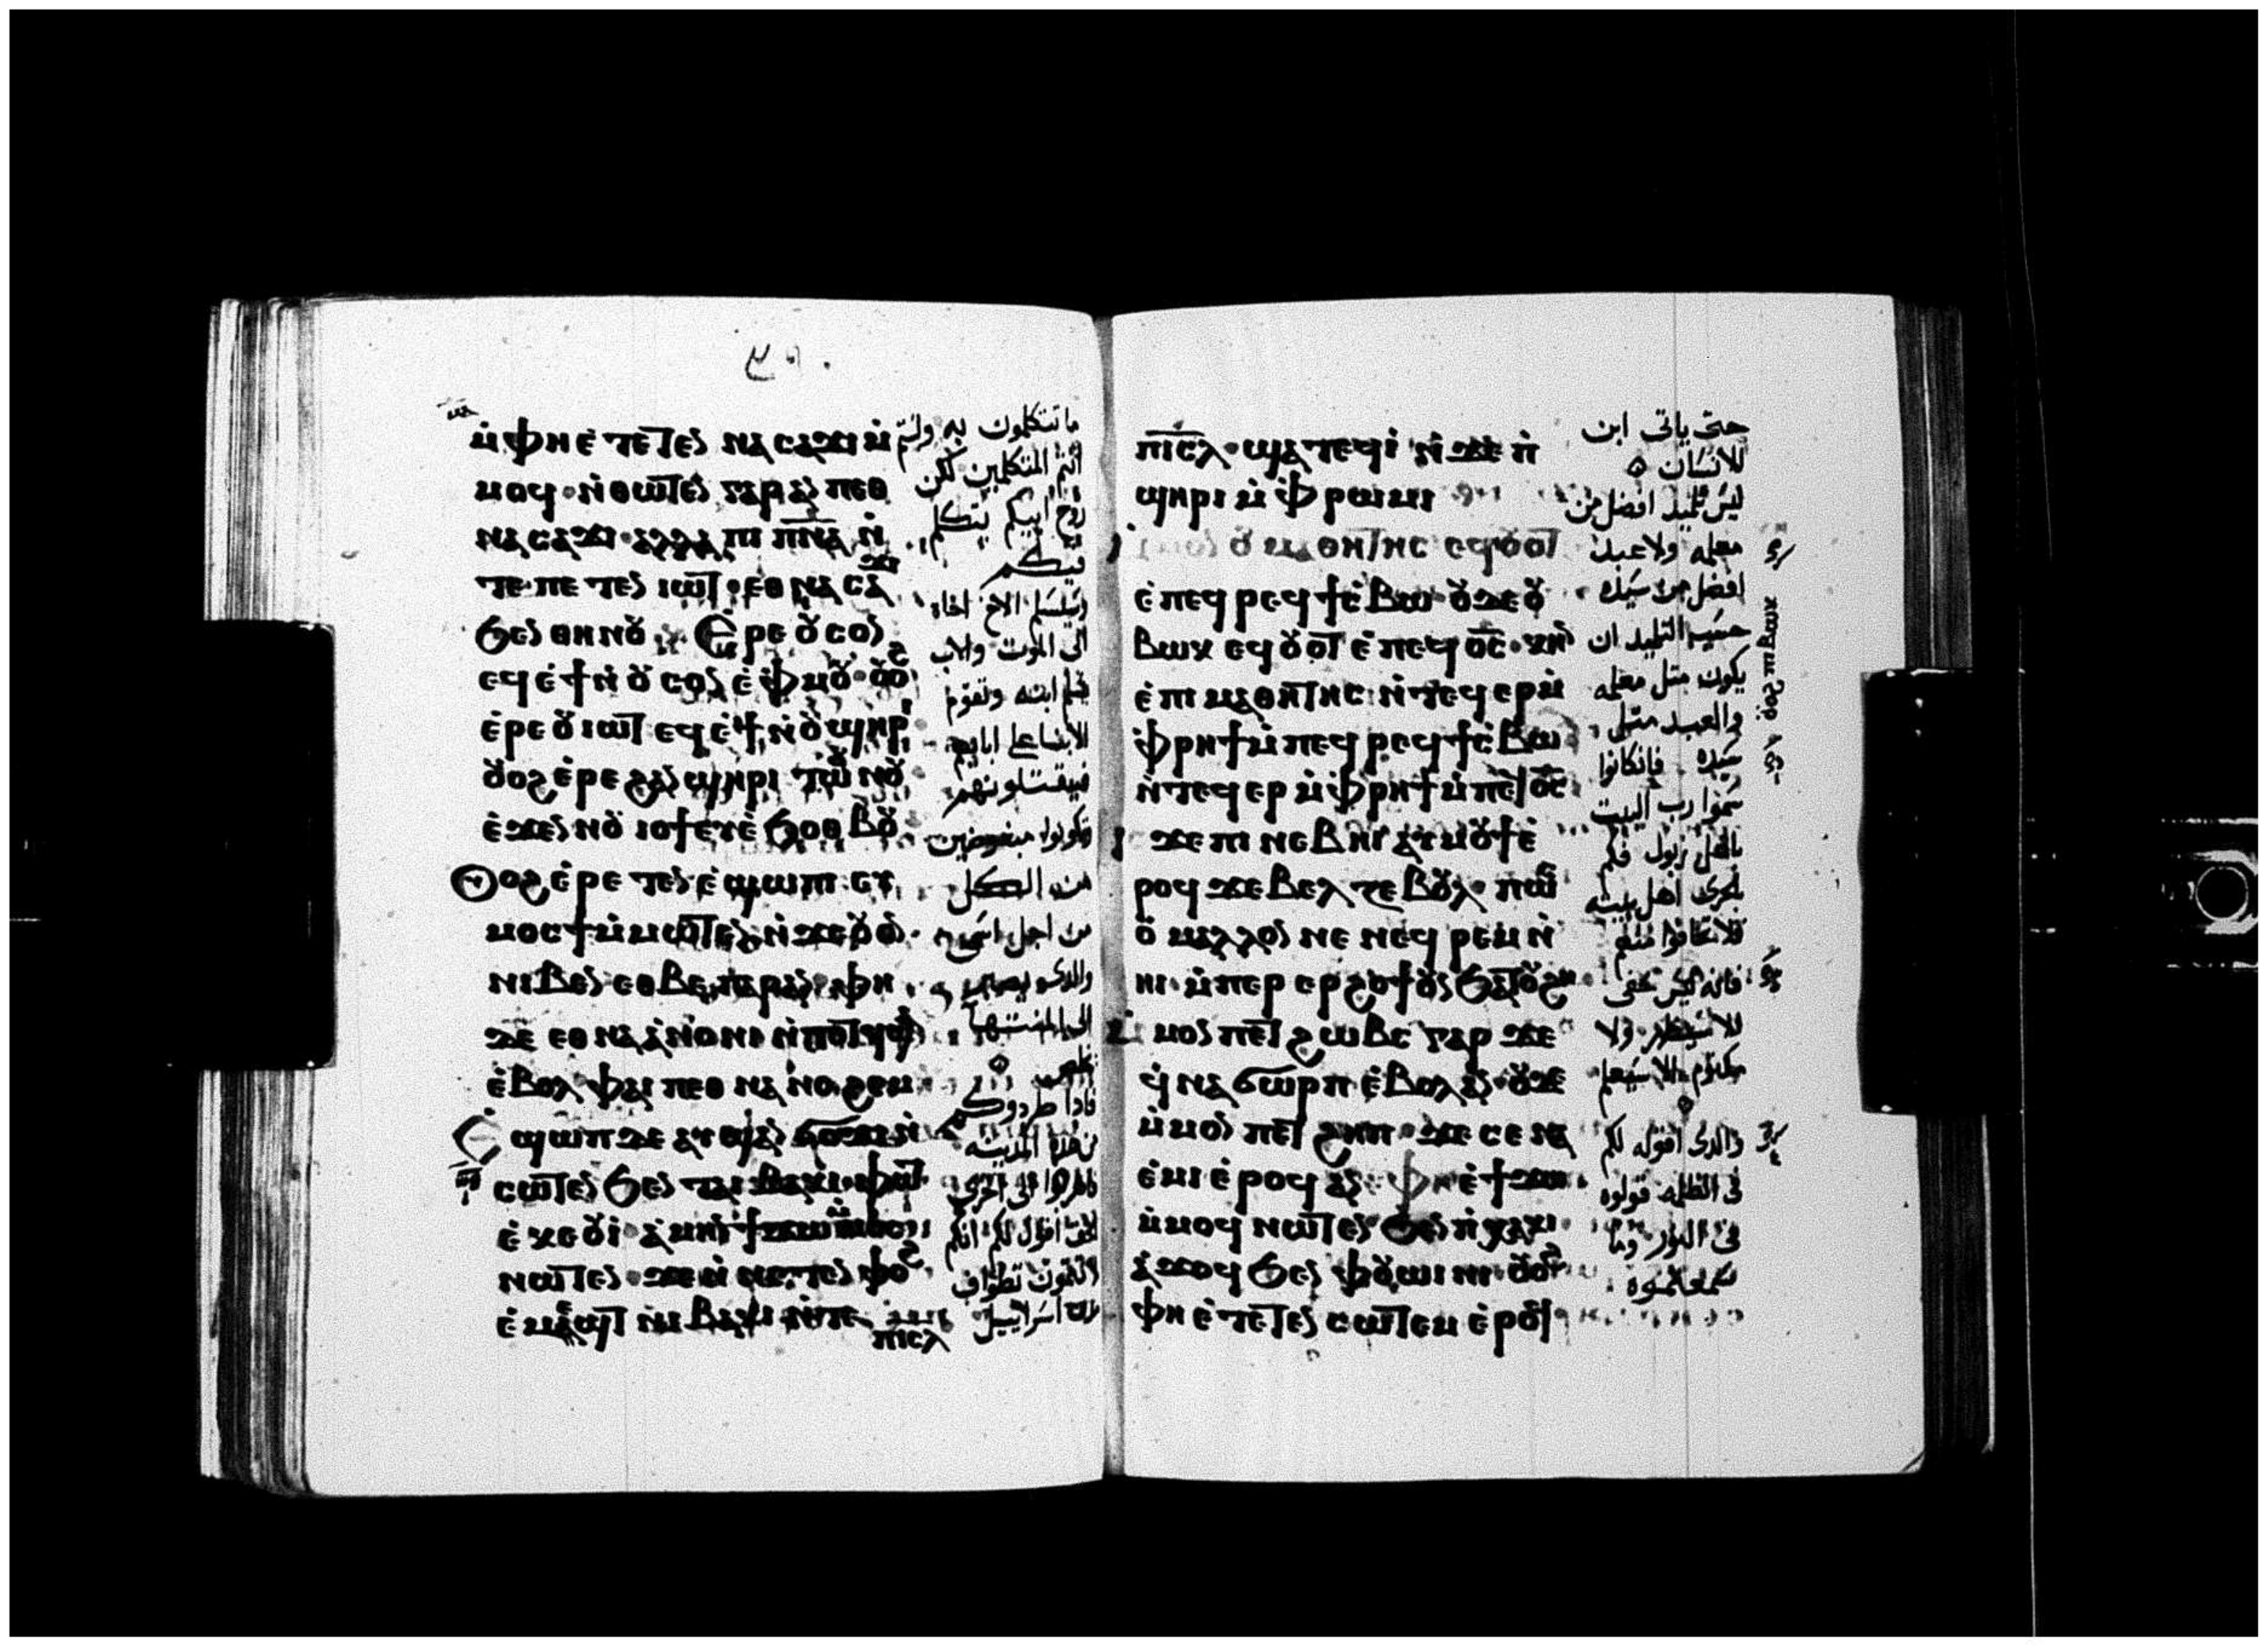 ⲙ̇ⲫⲏⲉ̇ⲧⲉⲧⲉⲛ ⲛⲁⲥⲁϫⲓ ⲙ̇
ⲙⲟϥ ⲛ̇ⲑⲱⲧⲉⲛ ⲅⲁⲣ ⲁⲛ ⲡⲉⲑ
ⲛⲁⲥⲁϫⲓ ⲁⲗⲗⲁ ⲡⲓ ⲡ̅ⲛ̅ⲁ̅ ⲛ̇
ⲧⲉ ⲡⲉⲧⲉⲛ ⲓⲱⲧ ⲉⲑⲛⲁⲥⲁϫⲓ
ϧⲉⲛ ⲑⲏⲛⲟⲩ Ⲉⲣⲉ ⲟⲩⲥⲟⲛ
ⲉϥⲉ̇ϯ ⲛ̇ⲟⲩⲥⲟⲛ ⲉ̇ⲫⲙⲟⲩ ⲟⲩⲟϩ
ⲉ̇ⲣⲉ ⲟⲩⲓⲱⲧ ⲉϥⲉ̇ϯ ⲛ̇ⲟⲩϣⲏⲣⲓ
ⲟⲩⲟϩ ⲉ̇ⲣⲉ ϩⲁⲛϣⲏⲣⲓ ⲧⲱⲟⲩⲛⲟⲩ
ⲉ̇ϫⲉⲛ ⲛⲟⲩⲓⲟϯ ⲉⲩⲉ̇ϧⲟⲑⲃⲟⲩ
Ⲟⲩⲟϩ ⲉ̇ⲣⲉⲧⲉⲛⲉ̇ϣⲱⲡⲓ ⲉⲩ
ⲙⲟⲥϯ ⲙ̇ⲙⲱⲧⲉⲛ ⲛ̇ϫⲉ ⲟⲩⲟⲛ
ⲛⲓⲃⲉⲛ ⲉⲑⲃⲉ ⲡⲁⲣⲁⲛ ⲫⲏ
ϫⲉ ⲉⲑⲛⲁⲁ̇ⲙⲟⲛⲓ ⲛ̇ⲧⲟⲧϥ
ⲉ̇ⲃⲟⲗ ⲫⲁⲓ ⲡⲉⲑⲛⲁⲛⲟϩⲉⲙ
Ⲉ̇ϣⲱⲡ ϫⲉ ⲁⲩϣⲁⲛϭⲟϫⲓ ⲛ̇
ⲥⲱⲧⲉⲛ ϧⲉⲛ ⲧⲁⲓⲃⲁⲕⲓ ⲫⲱⲧ
ⲉ̇ⲕⲉⲟⲩⲓ̇ ⲁ̇ⲙⲏⲛ ϯϫⲱ ⲙ̇ⲙⲟⲥ
ⲛⲱⲧⲉⲛ ϫⲉ ⲛ̇ⲛⲉⲧⲉⲛⲫⲟϩ
ⲉ̇ⲙⲉϣⲧ ⲛⲓⲃⲁⲕⲓ ⲛ̇ⲧⲉ
ⲡⲓⲥ̅ⲗ
ما تتكلمون به ولستم
انتم المتكلمين لكن
روح ابيكم يتكلم
فيكم
وسيسلم الاخ اخاه
الى الموت والاب
يسلم ابنه وتقوم
الابنا على ابايهم
فيقتلونهم
وتكونوا مبغوضين
من الكل
من اجل اسمى
والذى يصبر
الى المنتهآ
يخلص
فاذا طردوكم
من هذه المدينه
فاهربوا الى اخرى
الحق اقول لكم انكم
مدن اسراييل
ⲡⲓⲥ̅ⲗ ϣⲁⲧⲉϥⲓ̇ ⲛ̇ϫⲉ ⲡ̇
ϣⲏⲣⲓ ⲙ̇ⲫⲣⲱⲙⲓ
ⲟⲩⲙⲁⲑⲏⲧⲏⲥ ⲉϥⲟⲩⲟⲧ
ⲉ̇ⲡⲉϥⲣⲉϥϯⲥ̇ⲃⲱ ⲟⲩϫⲉ ⲟⲩ
ⲃⲱⲕ ⲉϥⲟⲩⲟⲧ ⲉ̇ⲡⲉϥⲟ̅ⲥ̅ ⲕⲏⲛ
ⲉ̇ⲡⲓⲙⲁⲑⲏⲧⲏⲥ ⲛ̇ⲧⲉϥⲉⲣ ⲙ̇
ⲫⲣⲏϯ ⲙ̇ⲡⲉϥⲣⲉϥϯⲥ̇ⲃⲱ
ⲛ̇ⲧⲉϥⲉⲣ ⲙ̇ⲫⲣⲏϯ ⲙ̇ⲡⲉϥⲟ̅ⲥ̅
ⲓⲥϫⲉ ⲡⲓⲛⲉⲃⲏⲓ ⲁⲩⲙⲟⲩϯ ⲉ̇
ⲣⲟϥ ϫⲉ ⲃⲉⲗⲍⲉⲃⲟⲩⲗ ⲡⲱⲥ
ⲟⲩ ⲙⲁⲗⲗⲟⲛ ⲛⲉ ⲛⲉϥⲣⲉⲙⲛ̇
ⲏⲓ ⲙ̇ⲡⲉⲣ ⲉⲣϩⲟϯ ⲟⲩⲛ ϧⲁⲧⲟⲩϩⲏ
ⲙ̇ⲙⲟⲛ ⲡⲉⲧϩⲱⲃⲥ ⲅⲁⲣ ϫⲉ
ϥ̇ⲛⲁϭⲱⲣⲡ ⲉ̇ⲃⲟⲗ ⲁⲛ ⲟⲩϫⲉ
ⲙ̇ⲙⲟⲛ ⲡⲉⲧϩⲏⲡ ϫⲉ ⲥⲉⲛⲁ
ⲉ̇ⲙⲓ ⲉ̇ⲣⲟϥ ⲁⲛ ⲫⲏⲉ̇ϯϫⲱ
ⲙ̇ⲙⲟϥ ⲛⲱⲧⲉⲛ ϧⲉⲛ ⲡ̇ⲭⲁⲕⲓ
ⲁ̇ϫⲟϥ ϧⲉⲛ ⲫⲟⲩⲱⲓⲛⲓ ⲟⲩⲟϩ
ⲫⲏⲉ̇ⲧⲉⲧⲉⲛ ⲥⲱⲧⲉⲙ ⲉ̇ⲣⲟϥ
حتى ياتى ابن
الانسان
ليس تلميذ افضل من
معلمه ولا عبد
افضل من سيده
حسب التلميذ ان
يكون مثل معلمه
والعبد مثل
سيده فان كانوا
سموا رب البيت
باعل زبول فكم
بالحرى اهل بيته
فلا تخافوا منهم
فانه ليس خفى
الا سيظهر ولا
مكتوم الا سيعلم
والذى اقوله لكم
فى الظلمه قولوه
فى النور وما
سمعتموه
ⲟⲩⲟϩ ⲡⲓⲃⲱⲕ